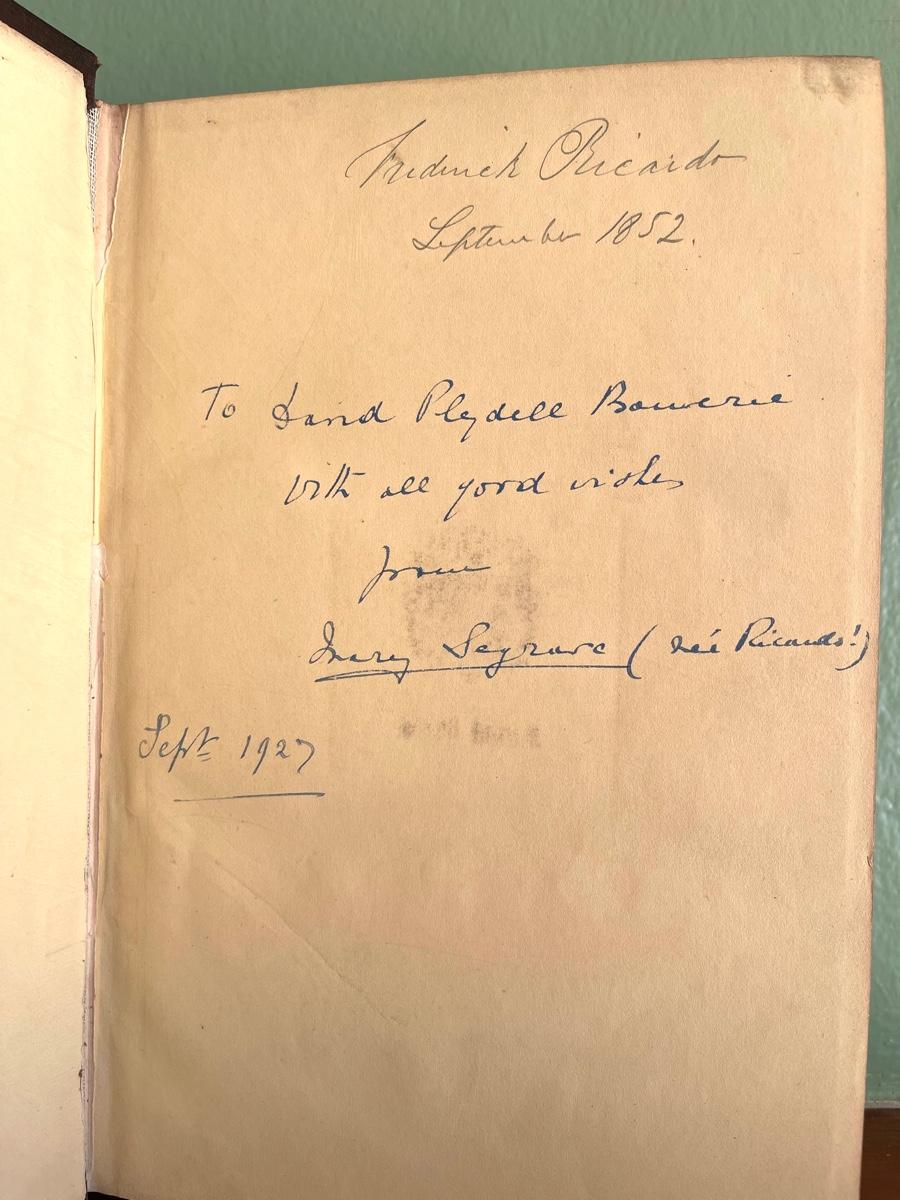 Frederick Ricardo
September 1852.
To David Pleydell Bouverie
With all good wishes
from
Mary Segrave ( née Ricardo! )
Sept 1927